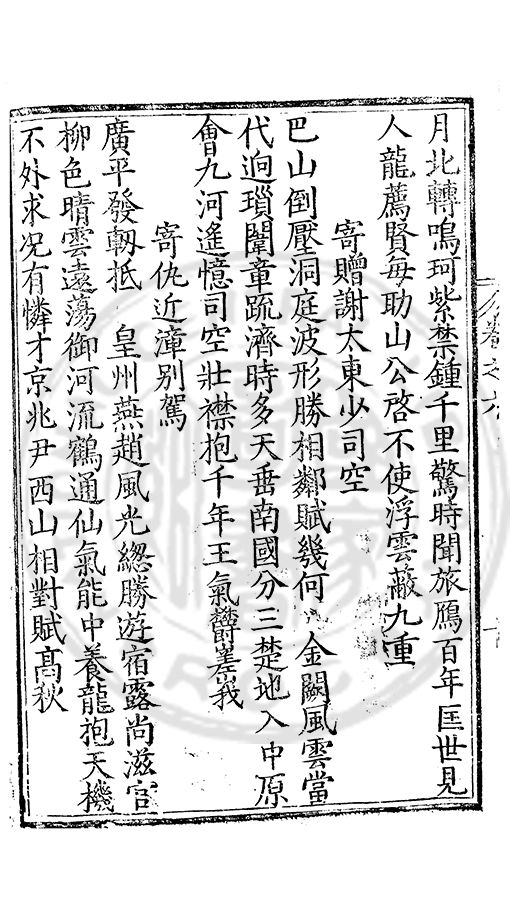 月北轉鳴珂紫禁鐘千里驚時聞旅鴈百年匡世見
人龍薦賢每助山公啓不使浮雲蔽九重
寄贈謝太東少司空
巴山倒壓洞庭波形勝相鄰賦幾何 金闕風雲當
代逈瑣闈章疏濟時多天垂南國分三楚地入中原
會九河遙憶司空壯襟抱千年王氣欝嵳峩
寄仇近漳別駕
廣平發軔抵 皇州燕趙風光緫勝遊宿露尚滋官
柳色晴雲遠蕩御河流鶴通仙氣能中養龍抱天機
不外求况有憐才京兆尹西山相對賦高秋